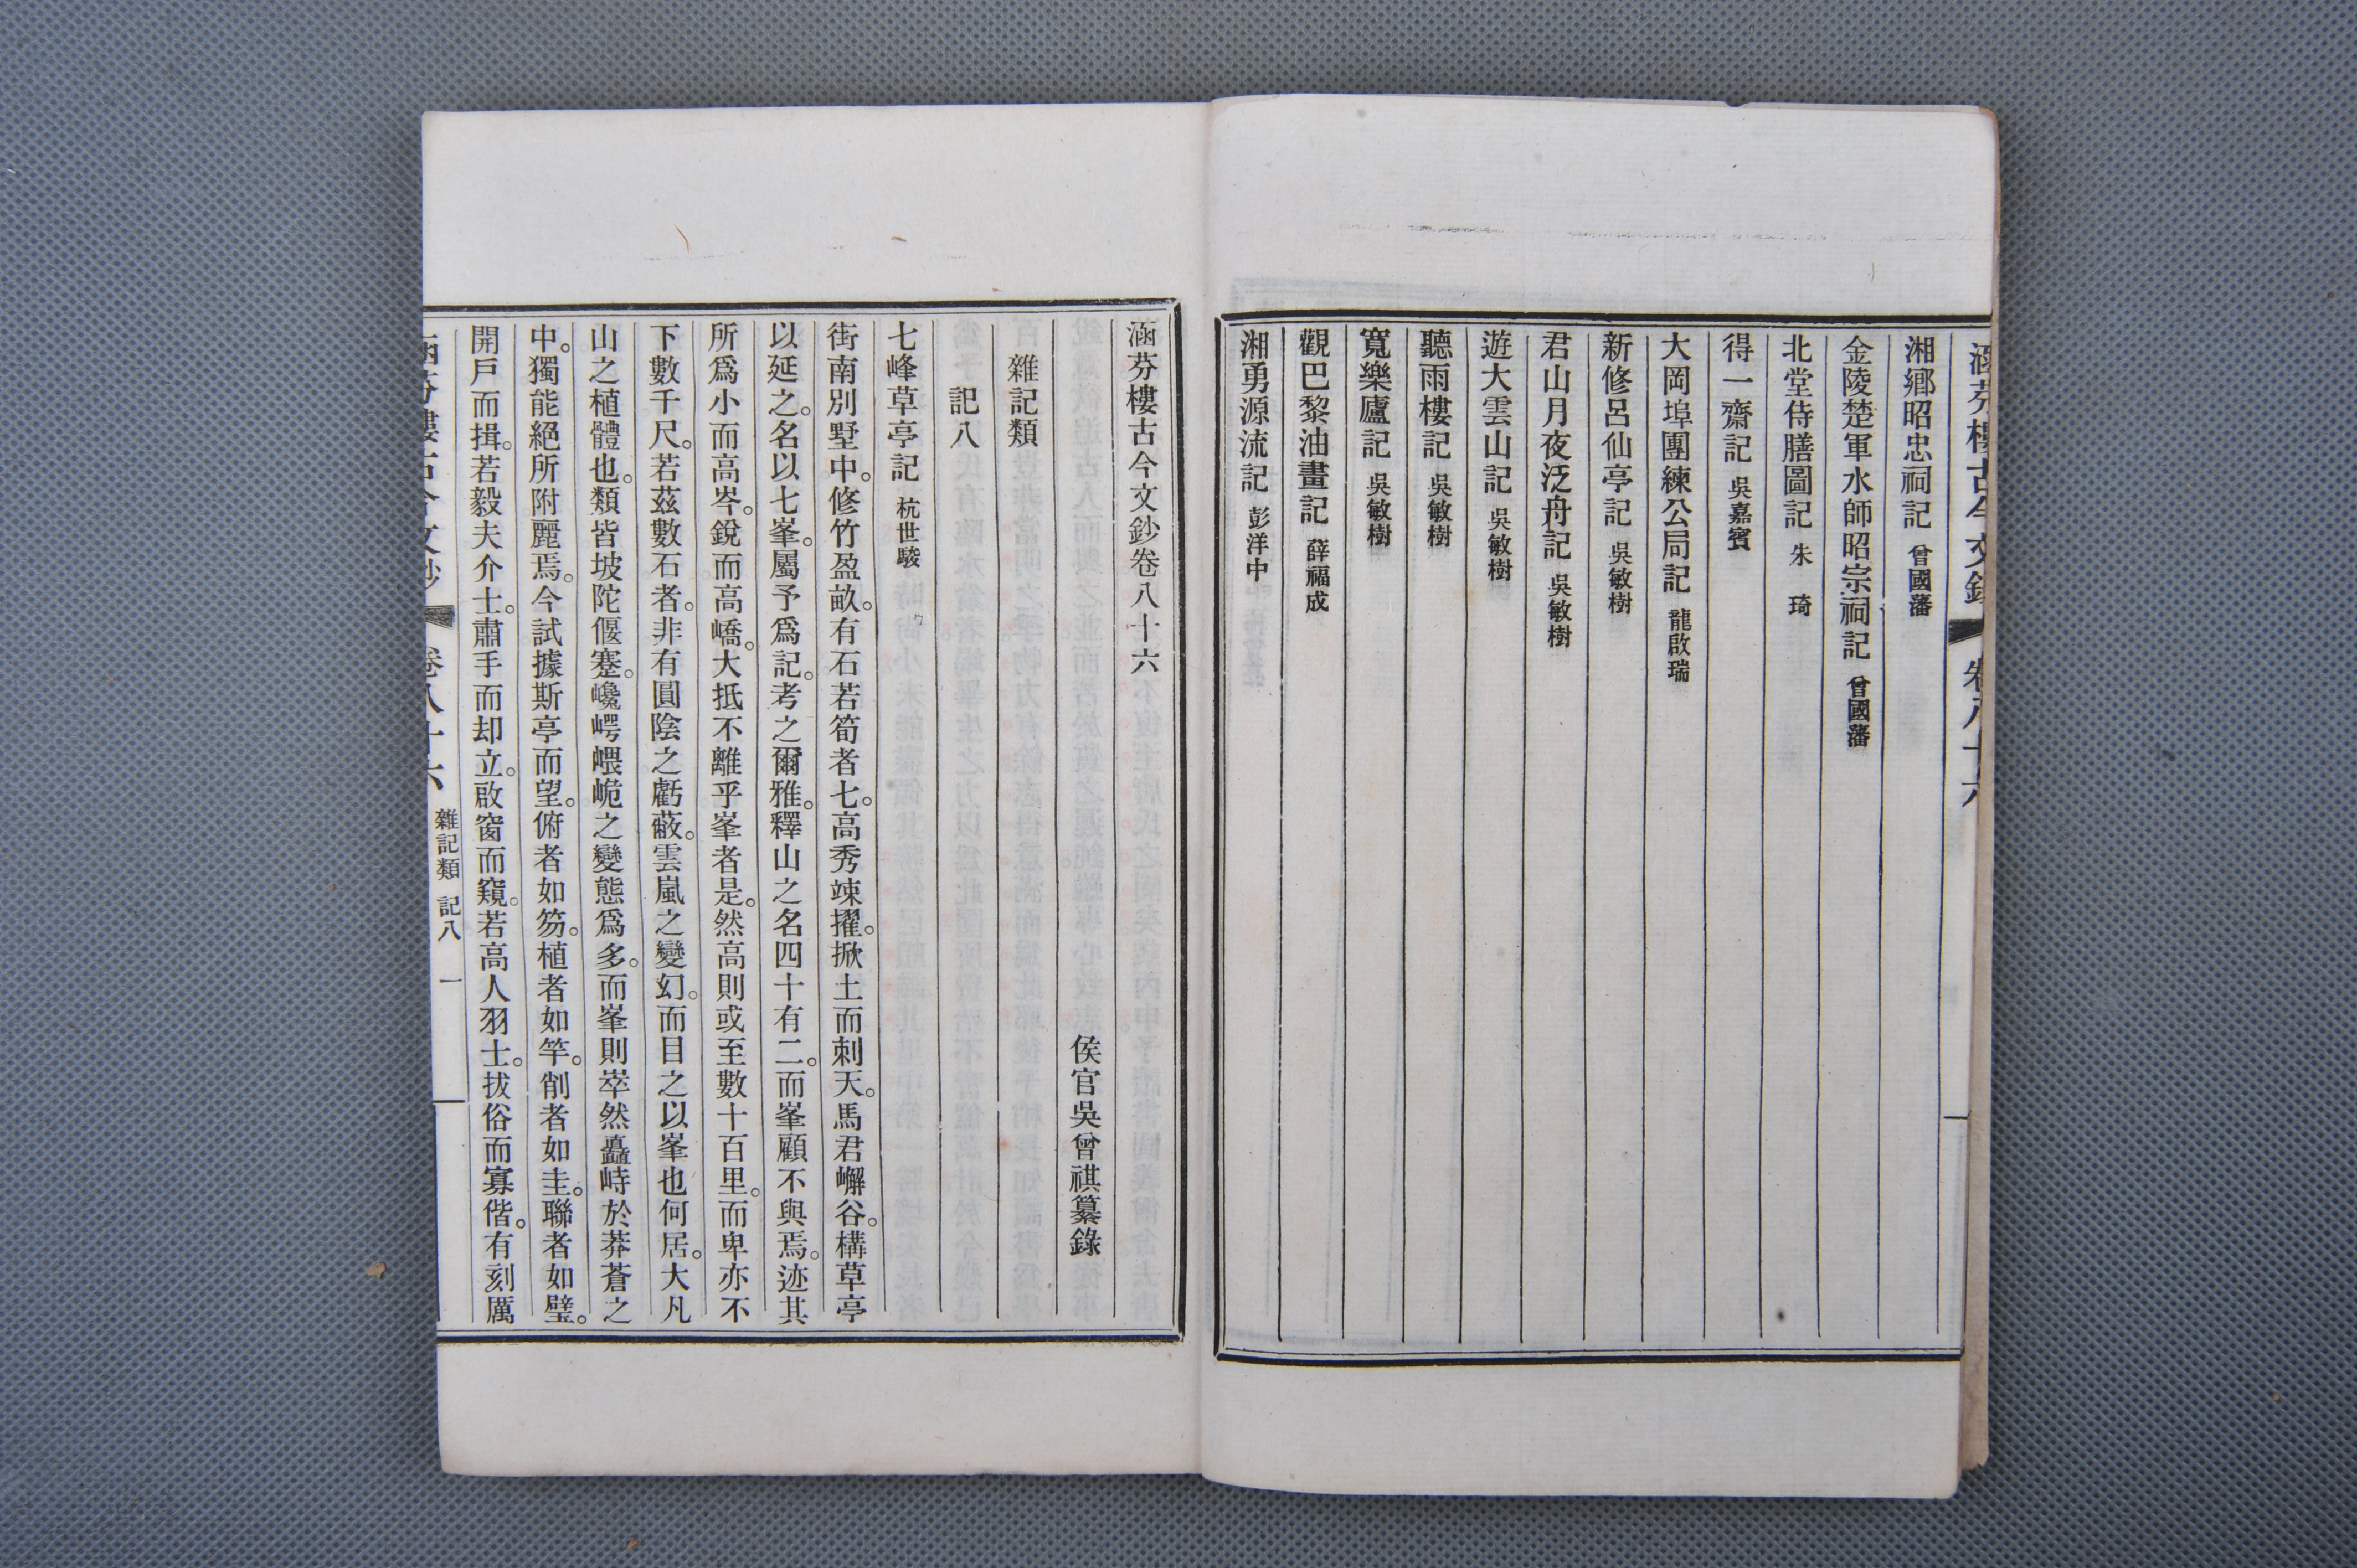 涵芬樓古今文鈔 卷八十六
湘鄉昭忠祠記 曾國藩
金陵楚軍水師昭宗祠記 曾國藩
北堂侍膳圖記 朱 琦
得一齋記 吳嘉賓
大岡埠團練公局記 龍啟瑞
新修呂仙亭記 吳敏樹
君山月夜泛舟記 吳敏樹
遊大雲山記 吳敏樹
聽雨樓記 吳敏樹
寬樂廬記 吳敏樹
觀巴黎油畫記 薛福成
湘勇源流記 彭洋中
涵芬樓古今文鈔卷八十六
侯官吳曾祺纂錄
雜記類
記八
七峰草亭記 杭世駿
街南別墅中。修竹盈畝。有石若筍者七。高秀竦擢。掀土而刺天。馬君嶰谷。構草亭
以延之。名以七峯。屬予爲記。考之爾雅。釋山之名四十有二。而峯顧不與焉。迹其
所爲小而高岑。銳而高嶠。大抵不離乎峯者是。然高則或至數十百里。而卑亦不
下數千尺。若茲數石者。非有圓陰之虧蔽。雲嵐之變幻。而目之以峯也何居。大凡
山之植體也。類皆坡陀偃蹇。巉崿㟪峗之變態爲多。而峯則崒然矗峙於莽蒼之
中。獨能絕所附麗焉。今試據斯亭而望。俯者如笏。植者如竿。削者如圭。聯者如璧。
開戶而揖。若毅夫介士。肅手而却立。啟窗而窺。若高人羽士。拔俗而寡偕。有刻厲
涵芬樓古今文鈔 卷八十六 雜記類 記八 一